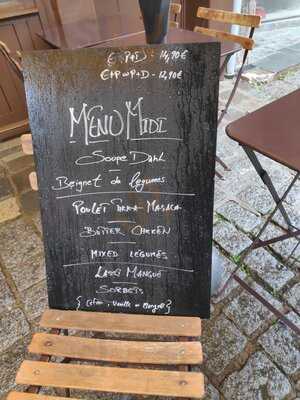 E+P+D - 14,90€
E+P ou P+D - 12,90€
MENU MIDI
Soupe Dahl
Beignet de légumes
POULET TIKKA-MASALA
BUTTER CHICKEN
MIXED LÉGUMES
LASSI MANGUE
SORBETS
{ Citron, Vanille ou Mangue }